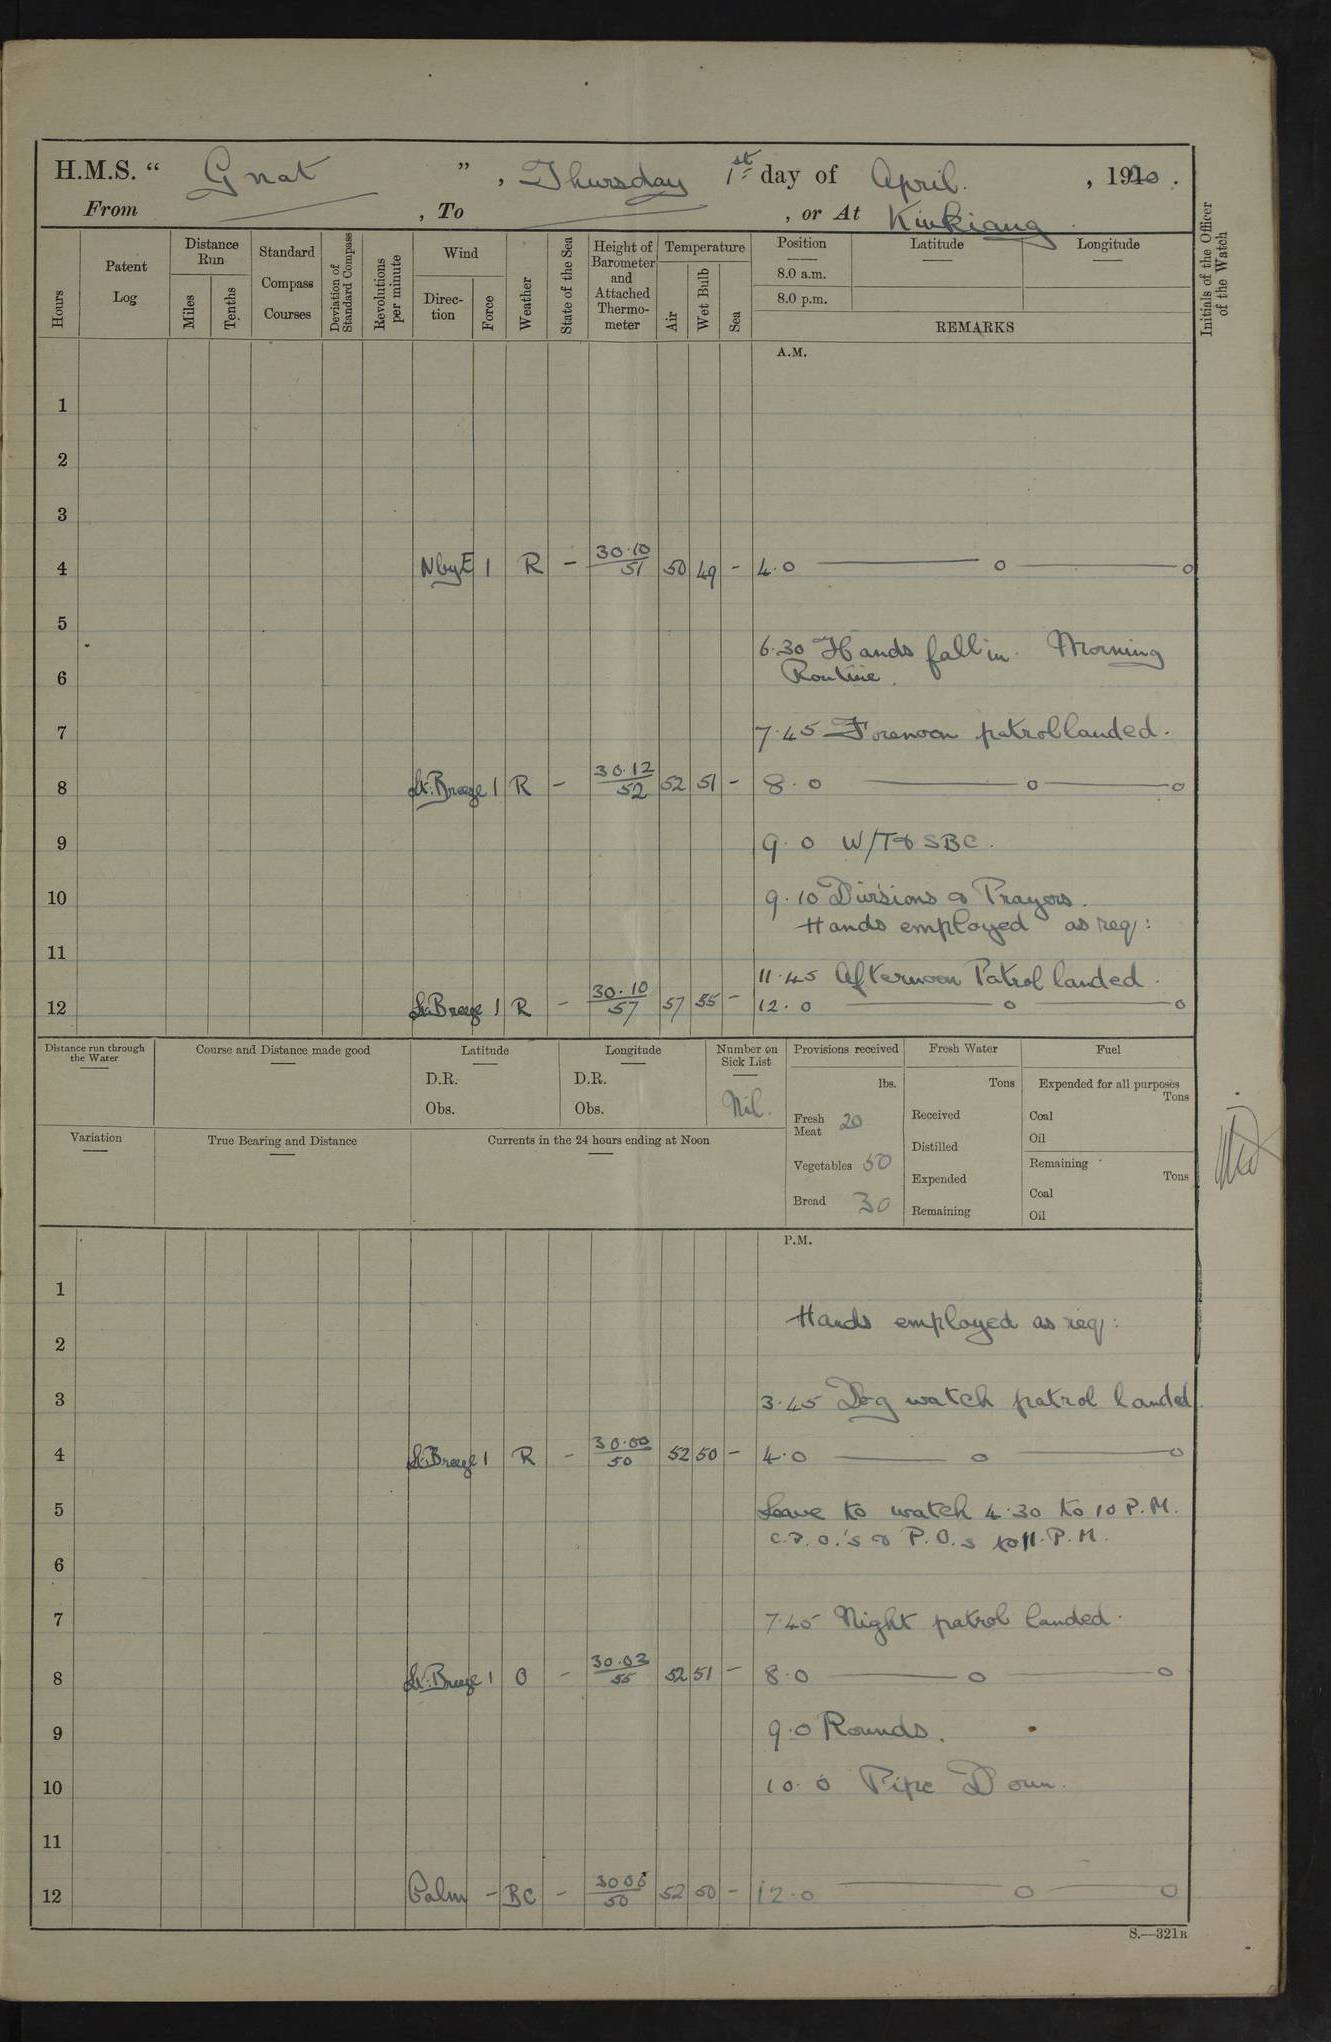 H.M.S. " Gnat ", Thursday 1st day of April. , 1920.
From , To , or At Kiukiang
Hours
Patent Log
Distance Run
Miles
Tenths
Standard Compass Courses
Deviation of Standard Compass
Revolutions per minute
Wind
Direc-tion
Force
Weather
State of the Sea
Height of Barometer and Attached Thermo-meter
Temperature
Air
Wet Bulb
Sea
Position
8.0 a.m.
8.0 p.m.
Latitude
Longitude
REMARKS
Initials of the Officer of the Watch
A.M.
1
2
3
4 NbyE 1 R - 30.10 51 50 49 - 4.0 o o
5
6.30 Hands fall in. Morning
6 Routine.
7 7.45 Forenoon patrol landed.
8 Lt. Breeze 1 R - 30.12 52 52 51 - 8.0 o o
9 9.0 W/T & SBC.
10 9.10 Divisions & Prayers.
Hands employed as req:
11
11.45 Afternoon Patrol landed.
12 Lt. Breeze 1 R - 30.10 57 57 55 - 12.0 o o
Distance run through the Water
Course and Distance made good
Latitude
D.R.
Obs.
Longitude
D.R.
Obs.
Number on Sick List
Nil.
Provisions received
lbs.
Fresh Meat 20
Vegetables 50
Bread 30
Fresh Water
Tons
Received
Distilled
Expended
Remaining
Fuel
Expended for all purposes
Tons
Coal
Oil
Remaining
Tons
Coal
Oil
Variation
True Bearing and Distance
Currents in the 24 hours ending at Noon
P.M.
1
Hands employed as req:
2
3 3.45 Dog watch patrol landed.
4 Lt. Breeze 1 R - 30.00 50 52 50 - 4.0 o o
5 Leave to watch 4.30 to 10 P.M.
C.P.O.'s & P.O.s to 11. P.M.
6
7 7.45 Night patrol landed.
8 Lt. Breeze 1 O - 30.03 55 52 51 - 8.0 o o
9 9.0 Rounds.
10 10.0 Pipe Down.
11
12 Calm - BC - 50 52 50 - 12.0 o o
S.—321B